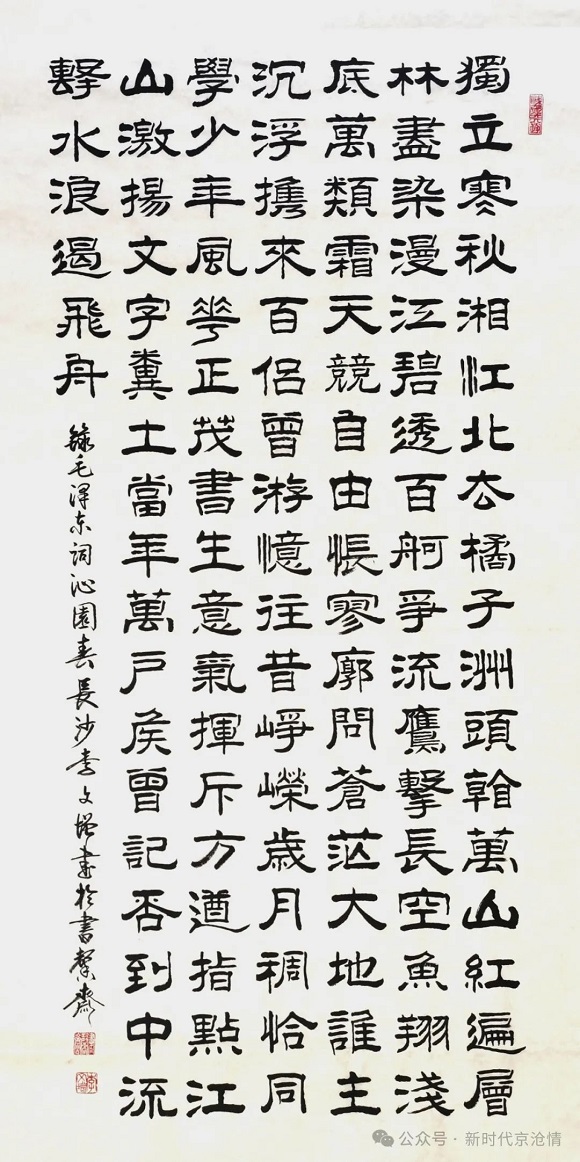 獨立寒秋湘江北去橘子洲頭看萬山紅遍層
林盡染漫江碧透百舸爭流鷹擊長空魚翔淺
底萬類霜天競自由悵寥廓問蒼茫大地誰主
沉浮携來百侶曾游憶往昔崢嶸歲月稠恰同
學少年風華正茂書生意氣揮斥方遒指點江
山激揚文字糞土當年萬戶侯曾記否到中流
擊水浪遏飛舟
錄毛澤东詞沁園春長沙李文書於書齋
公众号·新时代京沧情